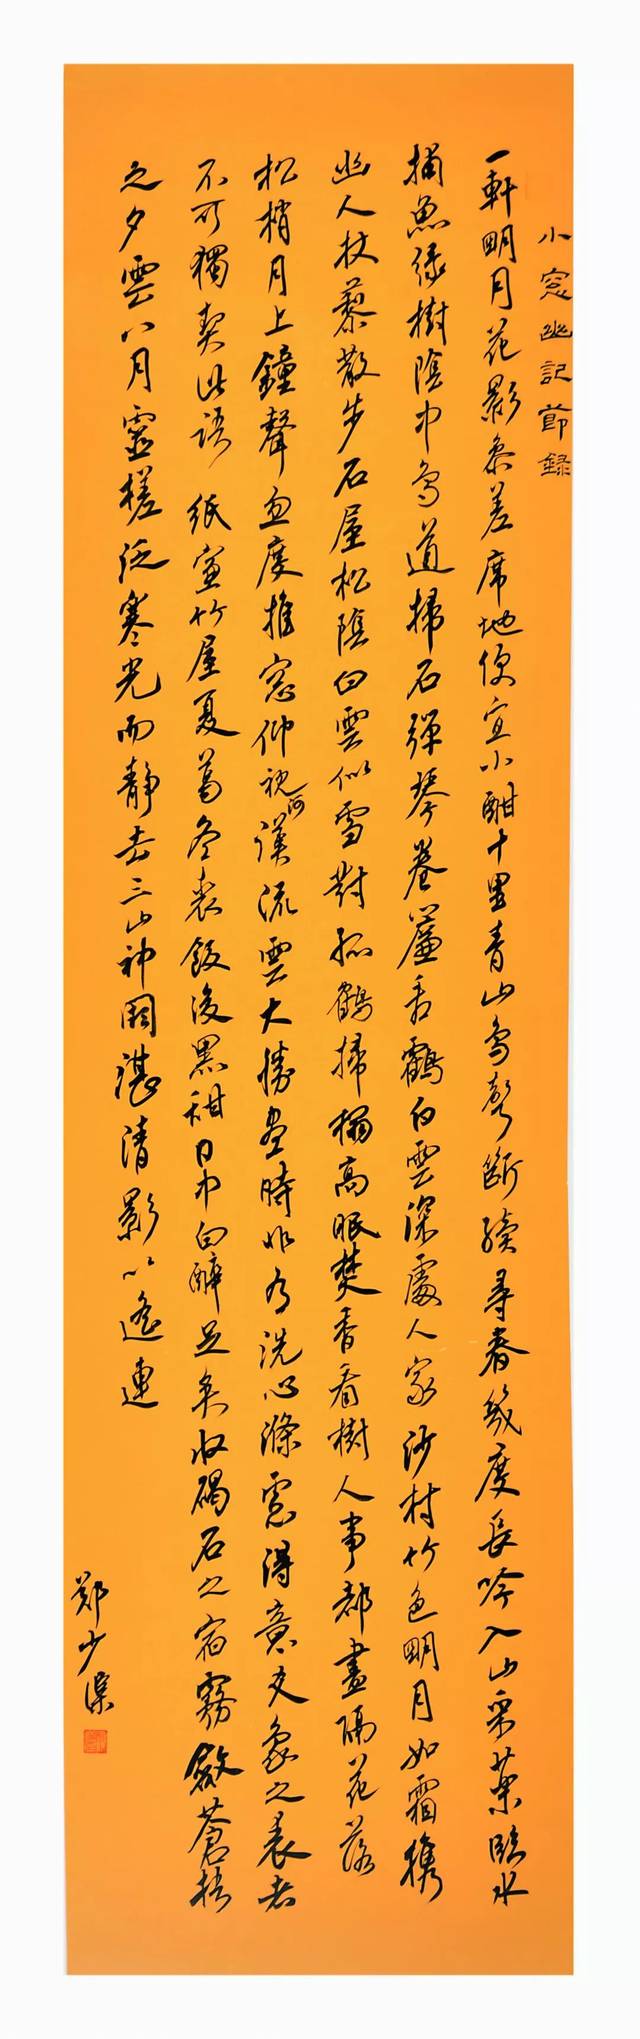 小窓幽記節録
一軒明月花影參差席地便宜小酣十里青山鳥聲斷續尋春幾度長吟入山采藥臨水
捕魚綠樹陰中鳥道掃石彈琴卷簾看鶴白雲深處人家沙村竹色明月如霜携
幽人杖藜散步石屋松陰白雲似雪對孤鶴掃榻高眠焚香看樹人事都盡隔花落
松梢月上鐘聲忽度推窓仰視河漢流雲大勝晝時非有洗心滌慮得意爻象之表者
不可獨契此語 紙窓竹屋夏葛冬裘飯後黑甜日中白醉足矣收碣石之宿霧斂蒼梧
之夕雲八月靈槎泛寒光而靜去三山神闕湛清影以遙連
鄭少渠